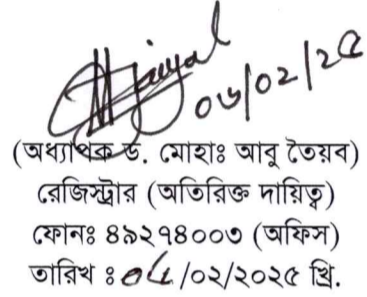 ০৬/০২/২৫
(অধ্যাপক ড. মোহাঃ আবু তৈয়ব)
রেজিস্ট্রার (অতিরিক্ত দায়িত্ব)
ফোনঃ ৪৯২৭৪০০৩ (অফিস)
তারিখ ঃ ০৬/০২/২০২৫ খ্রি.